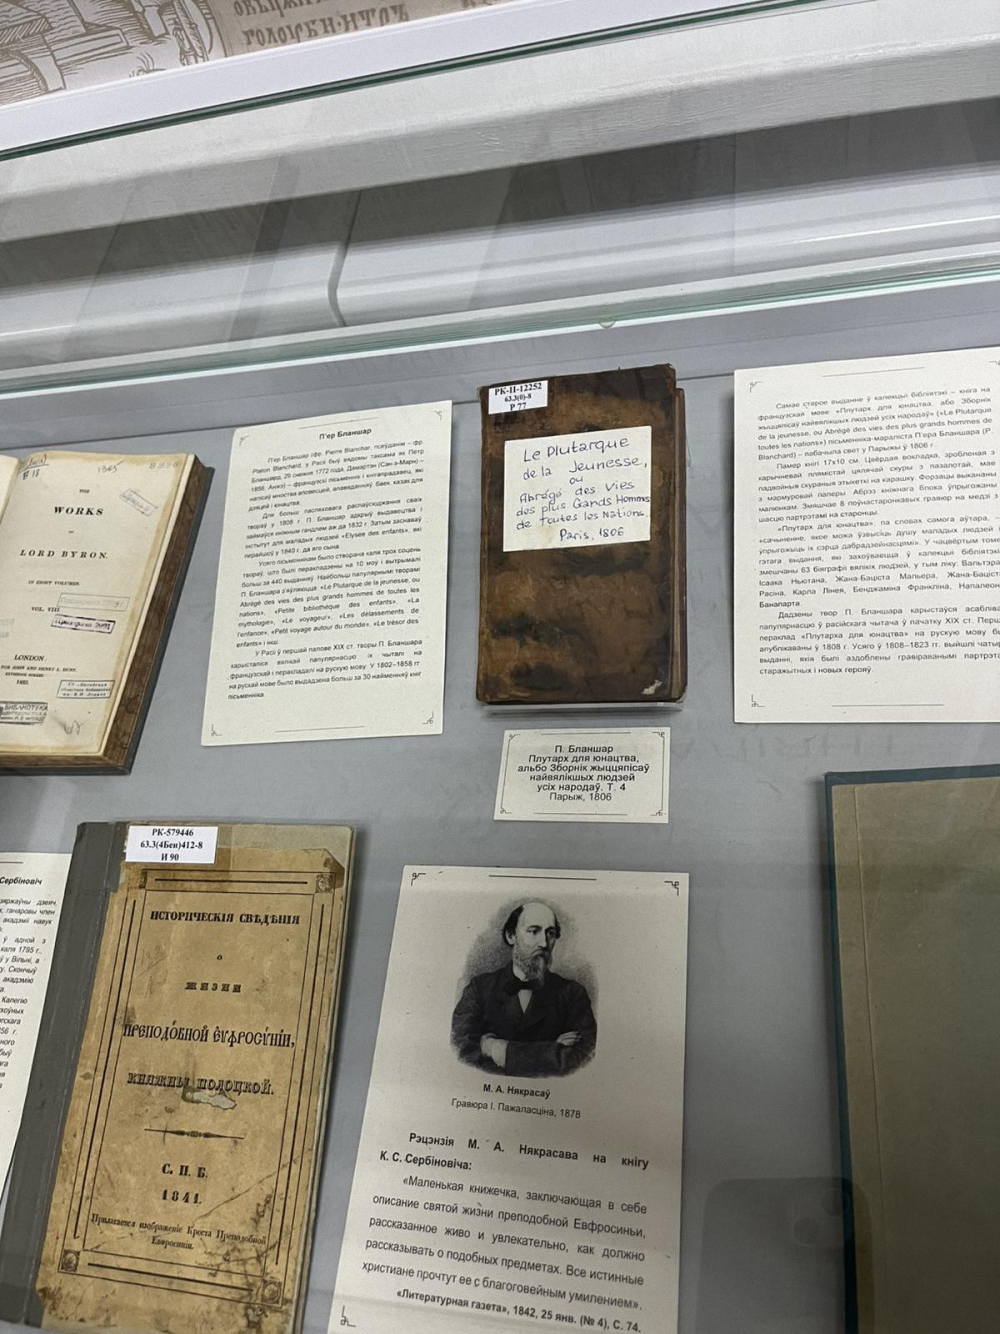 THE
WORKS
OF
LORD BYRON.
IN EIGHT VOLUMES.
VOL. VIII
LONDON
П'ер Бланшар
П'ер Бланшар (фр. Pierre Blanchard, псеўданім – фр.
Platon Blanchard, у Расіі быў вядомы таксама як Пётр
Бланшард; 29 снежня 1772 года, Дамартэн (Сен-э-Марн) –
1856, Анжэ) – французскі пісьменнік і кнігапрадавец, які
напісаў мноства аповесцей, апавяданняў, баек, казак для
дзяцей і юнацтва.
Для больш паспяховага распаўсюджвання сваіх
твораў у 1808 г. П. Бланшар адкрыў выдавецтва і
займаўся кніжным гандлем аж да 1832 г. Затым заснаваў
інстытут для маладых людзей «Elysee des enfants», які
перайшоў у 1840 г. да яго сына.
Усяго пісьменнікам было створана каля трох соцень
твораў, што былі перакладзены на 10 моў і вытрымалі
больш за 440 выданняў. Найбольш папулярнымі творамі
П. Бланшара з'яўляюцца: «Le Plutarque de la jeunesse, ou
Abrégé des vies des plus grands hommes de toutes les
nations», «Petite bibliothèque des enfants», «La
mythologie», «Le voyageur», «Les délassements de
l'enfance», «Petit voyage autour du monde», «Le trésor des
enfants» і інш.
У Расіі ў першай палове XIX ст. творы П. Бланшара
карысталіся вялікай папулярнасцю: іх чыталі на
французскай і перакладалі на рускую мову. У 1802–1858 гг.
на рускай мове было выдадзена больш за 30 найменняў кніг
пісьменніка.
РК-II-12252
63.3(0)-8
Р 77
Le Plutarque
de la Jeunesse,
ou
Abrégé des Vies
des plus Grands Hommes
de toutes les Nations.
Paris, 1806
П. Бланшар
Плутарх для юнацтва,
альбо Зборнік жыццяпісаў
найвялікшых людзей
усіх народаў. Т. 4
Парыж, 1806
Самае старое выданне ў калекцыі бібліятэкі – кніга на
французскай мове «Плутарх для юнацтва, або Зборнік
жыццяпісаў найвялікшых людзей усіх народаў» («Le Plutarque
de la jeunesse, ou Abrégé des vies des plus grands hommes de
toutes les nations») пісьменніка-мараліста П'ера Бланшара (P.
Blanchard) – пабачыла свет у Парыжы ў 1806 г.
Памер кнігі 17х10 см. Цвёрдая вокладка, зробленая з
карычневай плямістай цялячай скуры з пазалотай, мае
Форзацы выкананы
з мармуровай паперы. Абрэз кніжнага блока ўпрыгожаны
малюнкам. Змяшчае 8 поўнастаронкавых гравюр на медзі з
шасцю партрэтамі на старонцы.
«Плутарх для юнацтва», па словах самога аўтара,
«сачыненне, якое можа ўзвысіць душу маладых людзей і
ўпрыгожыць іх сэрца дабрадзейнасцямі». У чацвёртым томе
гэтага выдання, які захоўваецца ў калекцыі бібліятэкі,
змешчаны 63 біяграфіі вялікіх людзей, у тым ліку: Вальтэра,
Ісаака Ньютана, Жана-Баціста Мальера, Жана-Баціста
Расіна, Карла Лінея, Бенджаміна Франкліна, Напалеона
Банапарта.
Дадзены твор П. Бланшара карыстаўся асаблівай
папулярнасцю ў расійскага чытача ў пачатку XIX ст. Першы
пераклад «Плутарха для юнацтва» на рускую мову быў
апублікаваны ў 1808 г. Усяго ў 1808–1823 гг. выйшлі чатыры
выданні, якія былі аздоблены гравіраванымі партрэтамі
старажытных і новых герояў.
РК-579446
63.3(4Беи)412-8
И 90
ИСТОРИЧЕСКІЯ СВѢДѢНІЯ
о
ЖИЗНИ
ПРЕПОДОБНОЙ ЕѴФРОСИНІИ,
КНЯЖНЫ ПОЛОЦКОЙ.
С. П. Б.
1841.
Прилагается изображеніе Креста Преподобной
Евфросиніи.
Сербіновіч
М. А. Някрасаў
Гравюра І. Пажаласціна, 1878
Рэцэнзія М. А. Някрасава на кнігу
К. С. Сербіновіча:
«Маленькая книжечка, заключающая в себе
описание святой жизни преподобной Евфросиньи,
рассказанное живо и увлекательно, как должно
рассказывать о подобных предметах. Все истинные
христиане прочтут ее с благоговейным умилением».
«Литературная газета», 1842, 25 янв. (№ 4), С. 74.